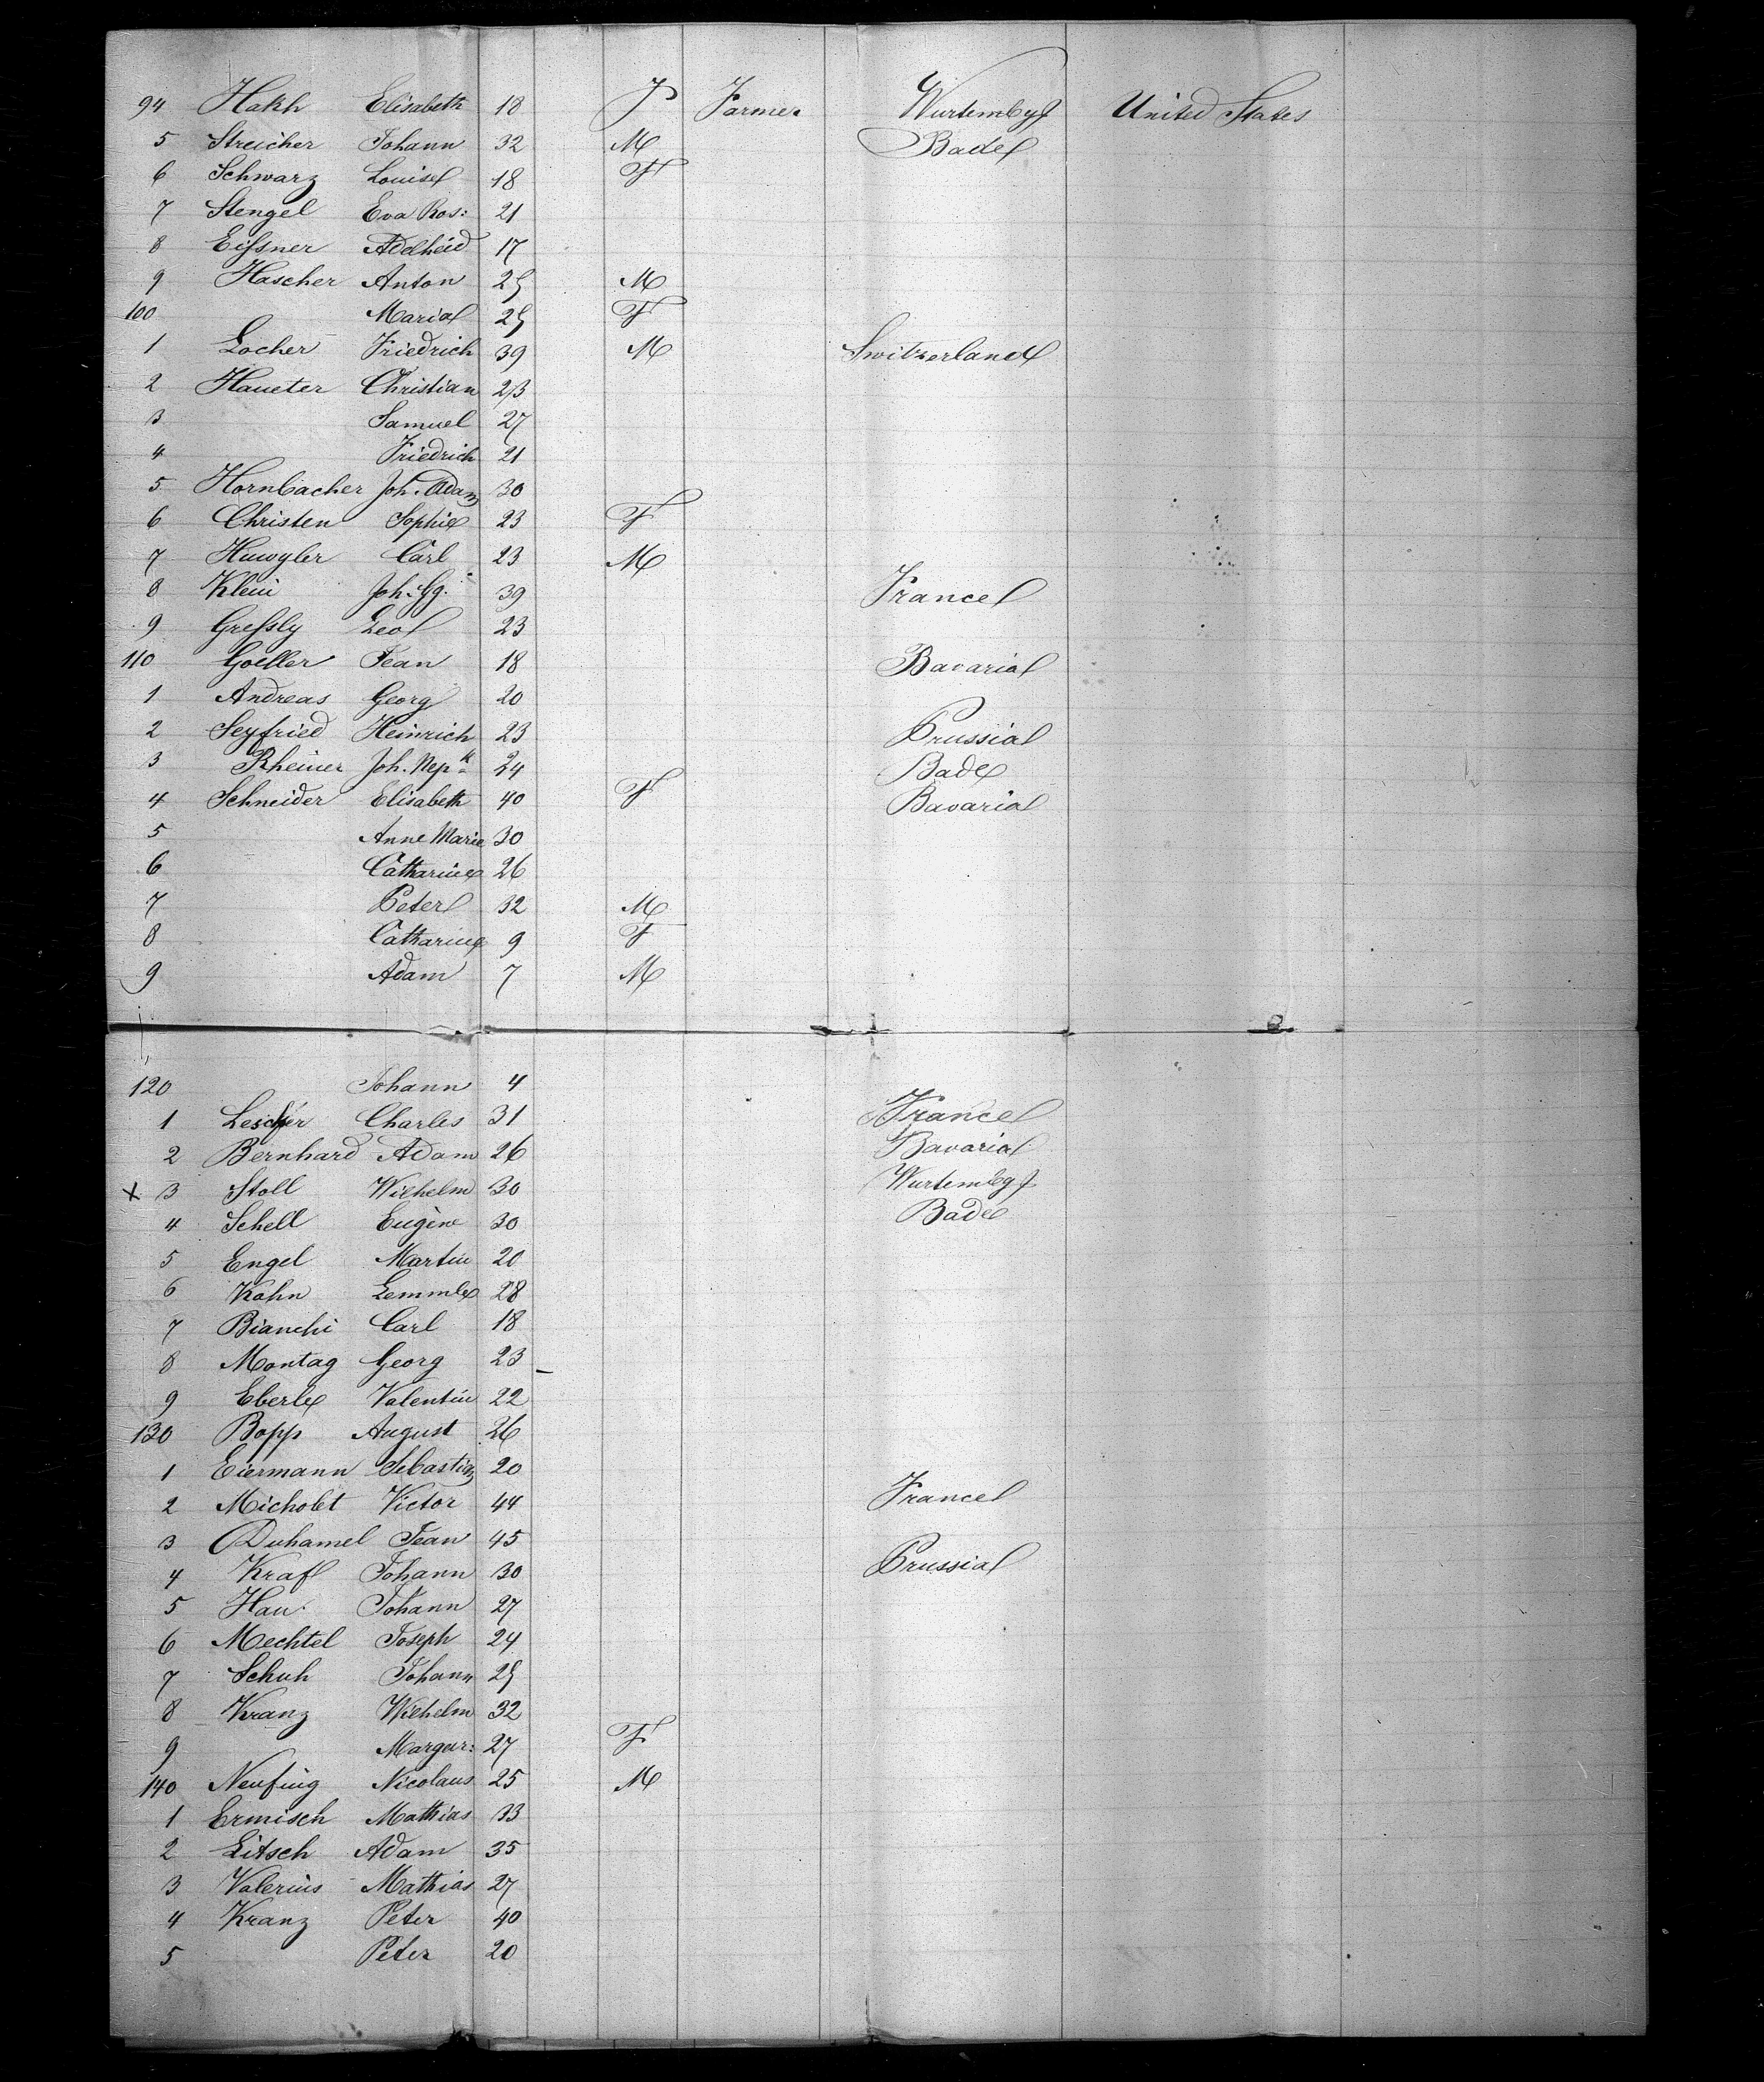 94 Hakh Elisabeth 18 F Farmer Wurtembg United States
5 Streicher Johann 32 M Bade
6 Schwarz Louise 18 F
7 Stengel Eva Ros: 21
8 Eissner Adelheid 17
9 Hascher Anton 25 M
100 Maria 25 F
1 Locher Friedrich 39 M Switzerland
2 Haueter Christian 23
3 Samuel 27
4 Friedrich 21
5 Hornbacher Joh. Adam 30
6 Christen Sophie 23 F
7 Huwyler Carl 23 M
8 Klein Joh. Gg. 39 France
9 Gressly Leo 23
110 Goeller Jean 18 Bavaria
1 Andreas Georg 20
2 Seyfried Heinrich 23 Prussia
3 Rheiner Joh. Nepk 24 Bade
4 Schneider Elisabeth 40 F Bavaria
5 Anne Marie 30
6 Catharine 26
7 Peter 32 M
8 Catharine 9 F
9 Adam 7 M
120 Johann 4
1 Charles 31 France
2 Bernhard Adam 26 Bavaria
x 3 Stoll Wilhelm 30 Wurtembg
4 Schell Eugène 30 Bade
5 Engel Martin 20
6 Kahn Lemmle 28
7 Bianchi Carl 18
8 Montag Georg 23
9 Eberle Valentin 22
130 Bopp August 26
1 Eiermann Sebastian 20
2 Micholet Victor 44 France
3 Duhamel Jean 45
4 Kraf Johann 30 Prussia
5 Hau Johann 27
6 Mechtel Joseph 24
7 Schuh Johann 25
8 Kranz Wilhelm 32
9 Margar: 27 F
140 Neufing Nicolaus 25 M
1 Ermisch Mathias 33
2 Litsch Adam 35
3 Valerius Mathias 27
4 Kranz Peter 40
5 Peter 20